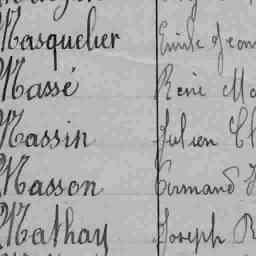 Masquelier Emile Jean
Massé René Ma
Massin Julien Cl
Masson Armand
Mathay Joseph R